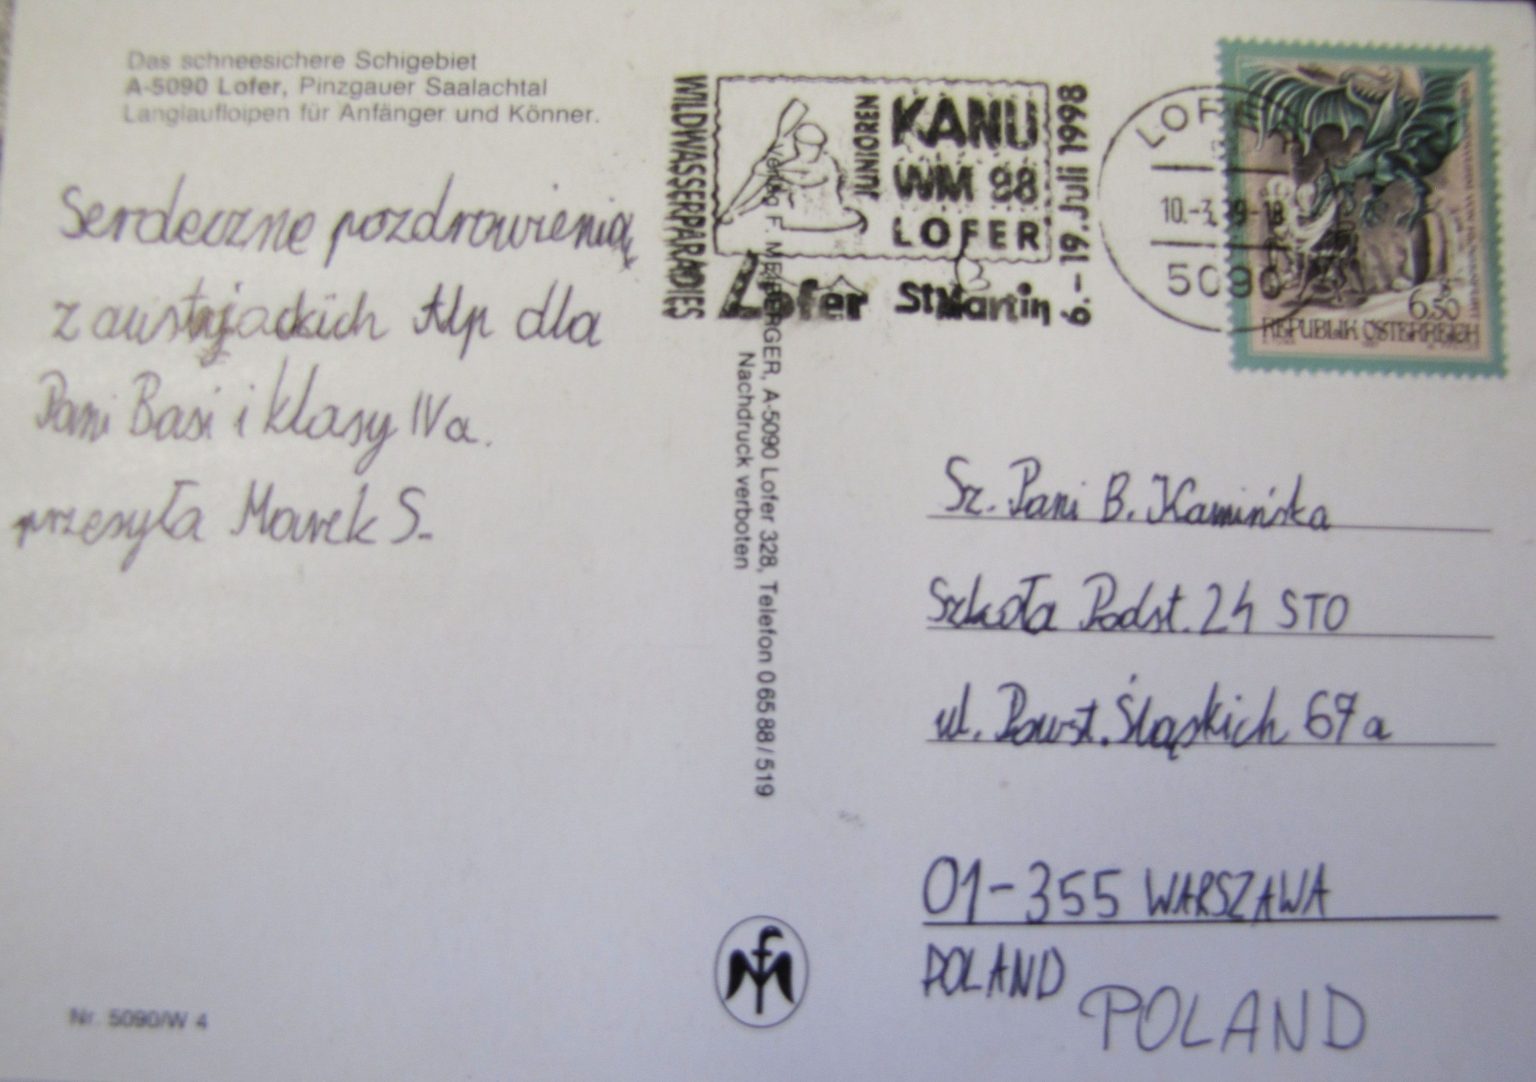 Das schneesichere Schigebiet
A-5090 Lofer, Pinzgauer Saalachtal
Langlaufloipen für Anfänger und Könner.
Serdeczne pozdrowienia
z austrjackich Alp dla
Pani Basi i klasy IVa.
przesyła Marek S.
Nr. 5090/W 4
WILDWASSERPARADIES
JUNIOREN
KANU
WM 98
LOFER
9.-19. Juli 1998
Lofer St Martin
Verlag F. MEIBERGER, A-5090 Lofer 328, Telefon 0 65 88 / 519
Nachdruck verboten
LOFER
5090
6.50
REPUBLIK ÖSTERREICH
Sz. Pani B. Kamińska
Szkoła Podst. 24 STO
ul. Powst. Śląskich 67a
01-355 WARSZAWA
POLAND
POLAND